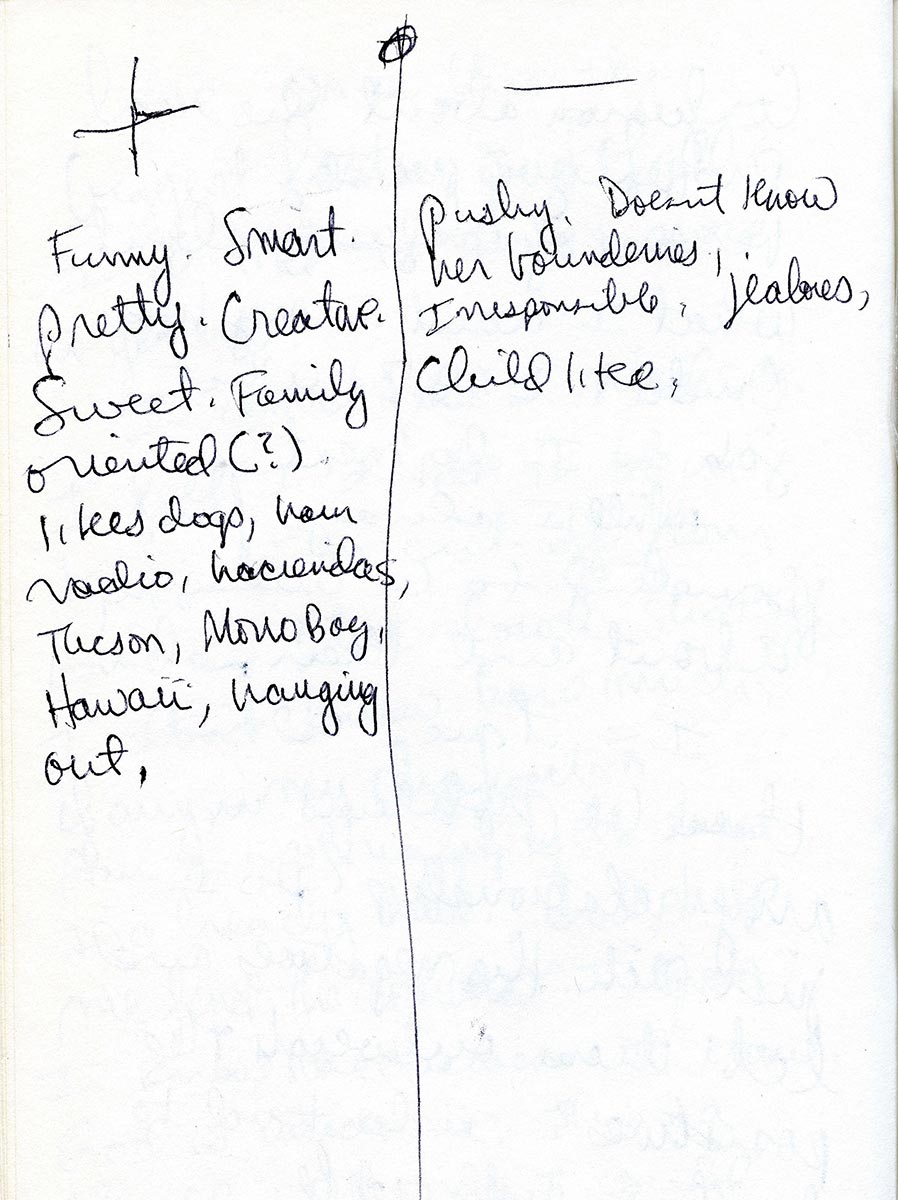 +
Funny. Smart.
Pretty. Creative.
Sweet. Family
oriented (?).
likes dogs, ham
radio, haciendas,
Tucson, Morro Bay,
Hawaii, hanging
out,
—
Pushy. Doesnt know
her bounderies,
Irresponsible, jealous,
Child like,